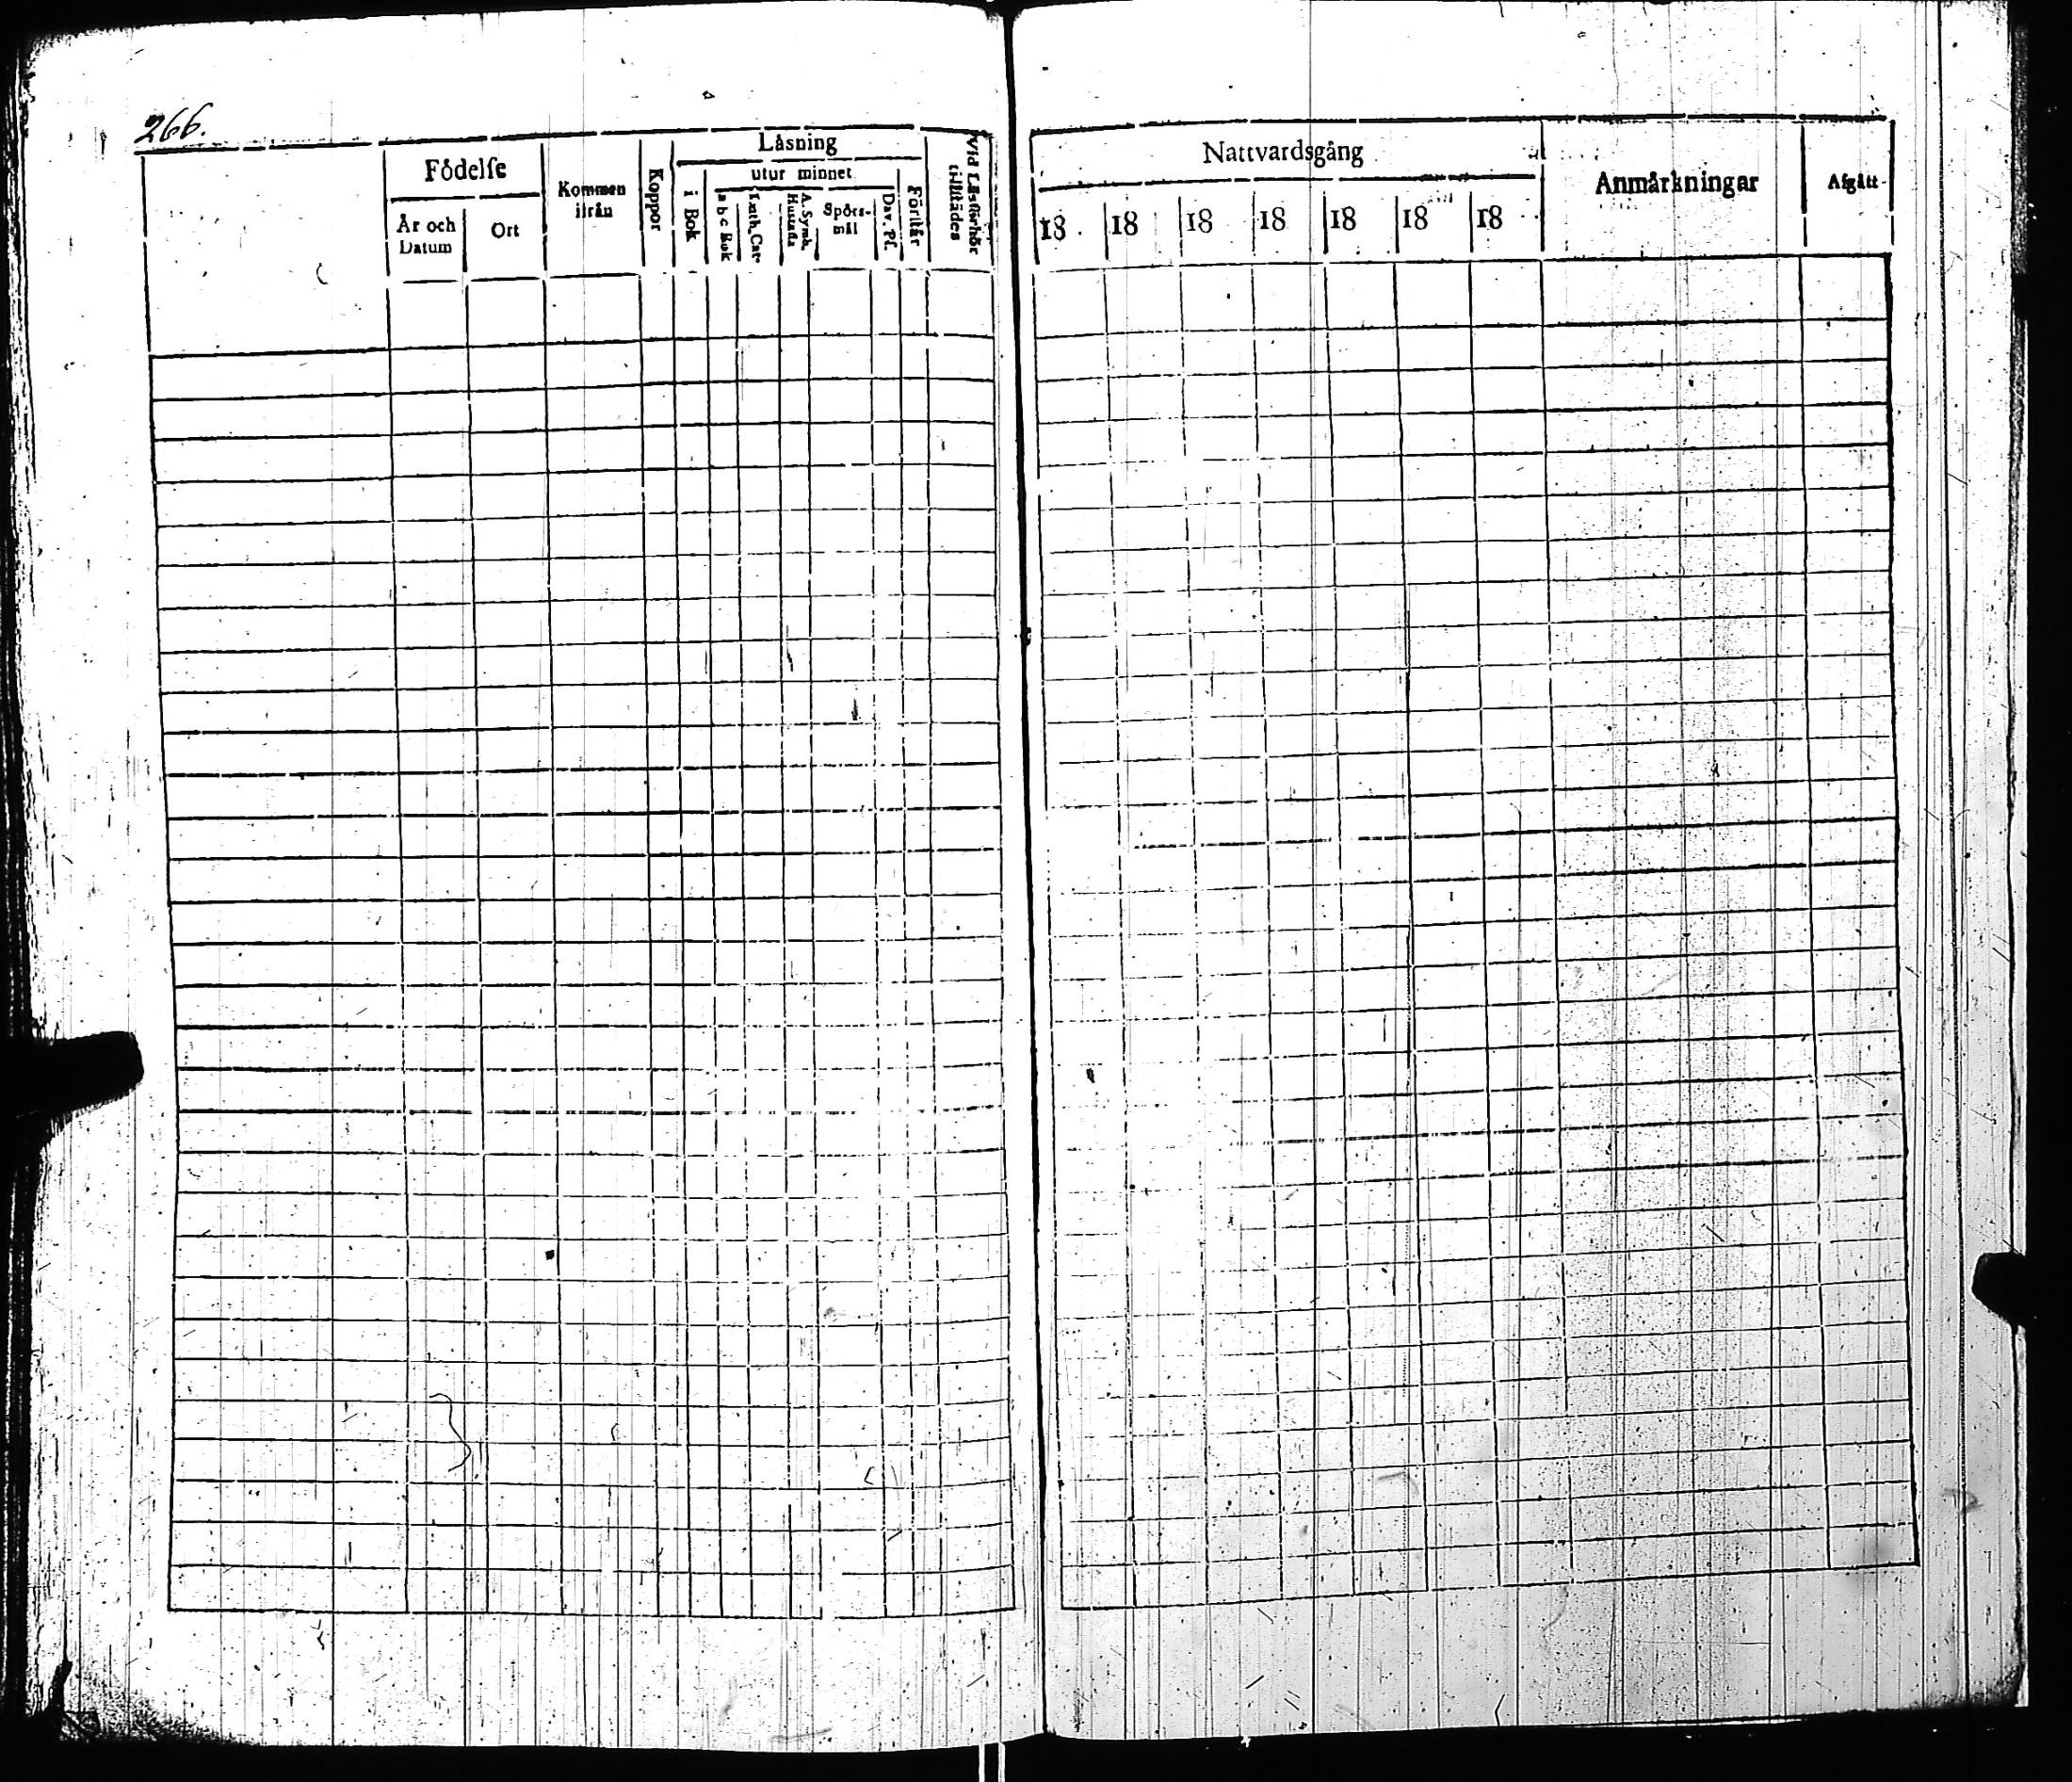 266.
Födelse
År och Datum
Ort
Kommen ifrån
Koppor
Läsning
i Bok
utur minnet
a b c Bok
Luth. Cat.
A. Symb. Hustafla
Spörsmål
Dav. Ps.
Förstår
Vid Läsförhör tillstädes
Nattvardsgång
18 18 18 18 18 18 18
Anmärkningar
Afgått